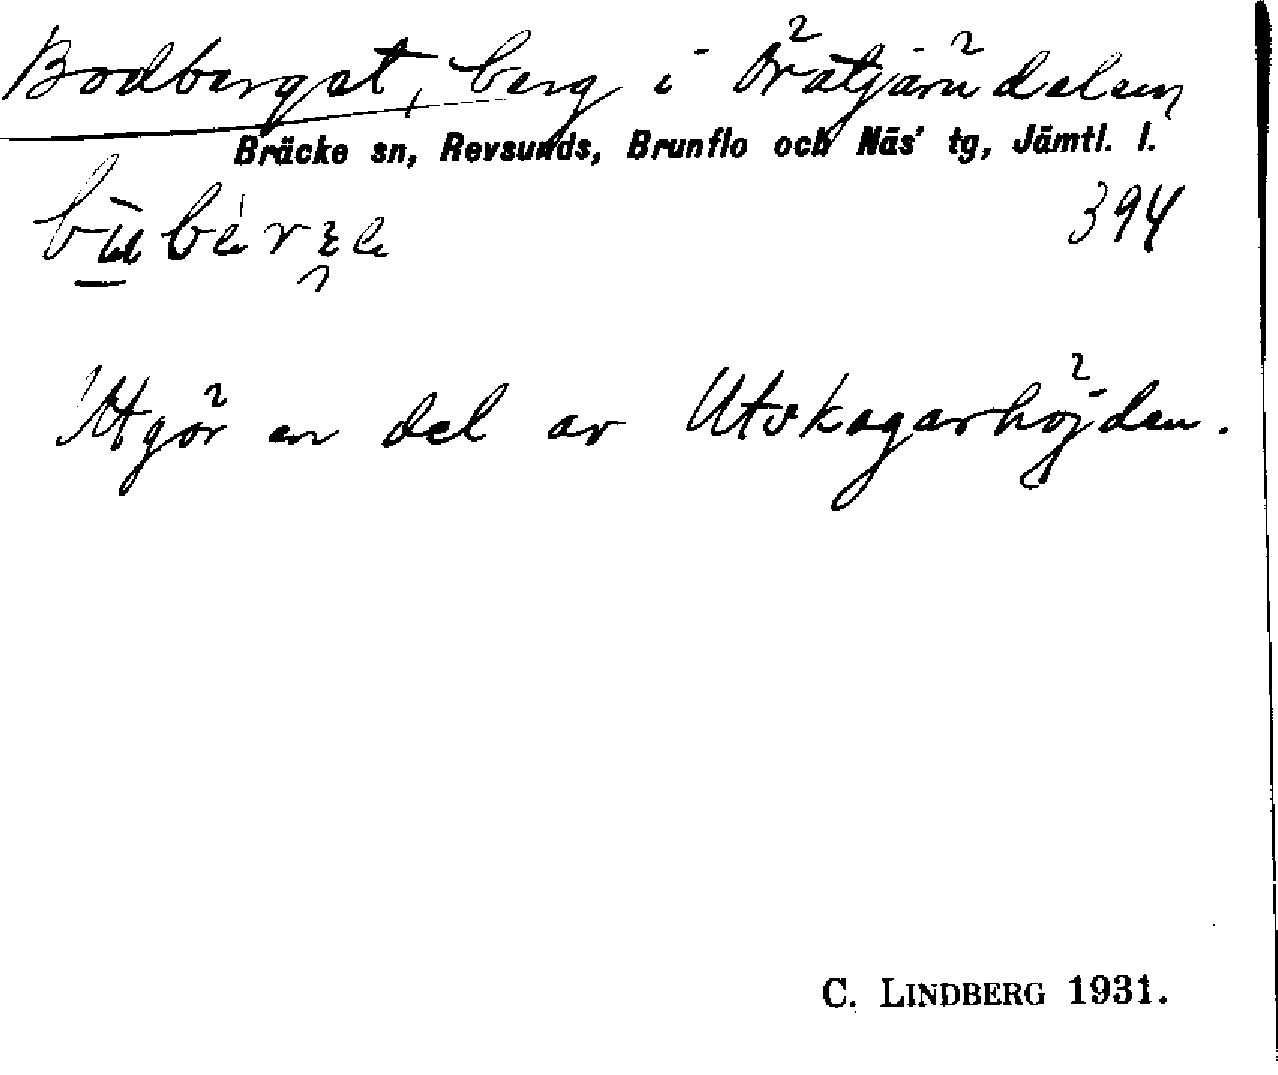 Bodberget, berg i Örätjärndalen
Bräcke sn, Revsunds, Brunflo och Näs' tg, Jämtl. l.
394
Utgör en del av Utskogarhöjden.
C. LINDBERG 1931.